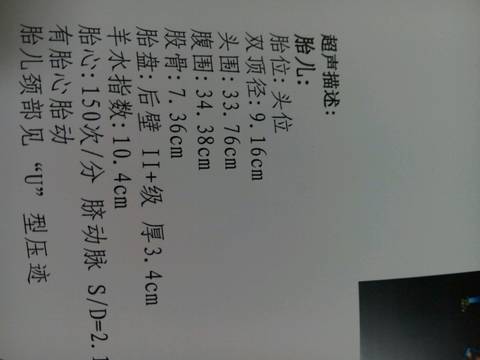 超声描述:
胎儿:
胎位:头位
双顶径:9.16cm
头围:33.76cm
腹围:34.38cm
股骨:7.36cm
胎盘:后壁 II+级 厚3.4cm
羊水指数:10.4cm
胎心:150次/分 脐动脉 S/D=2.1
有胎心胎动
胎儿颈部见 “U” 型压迹